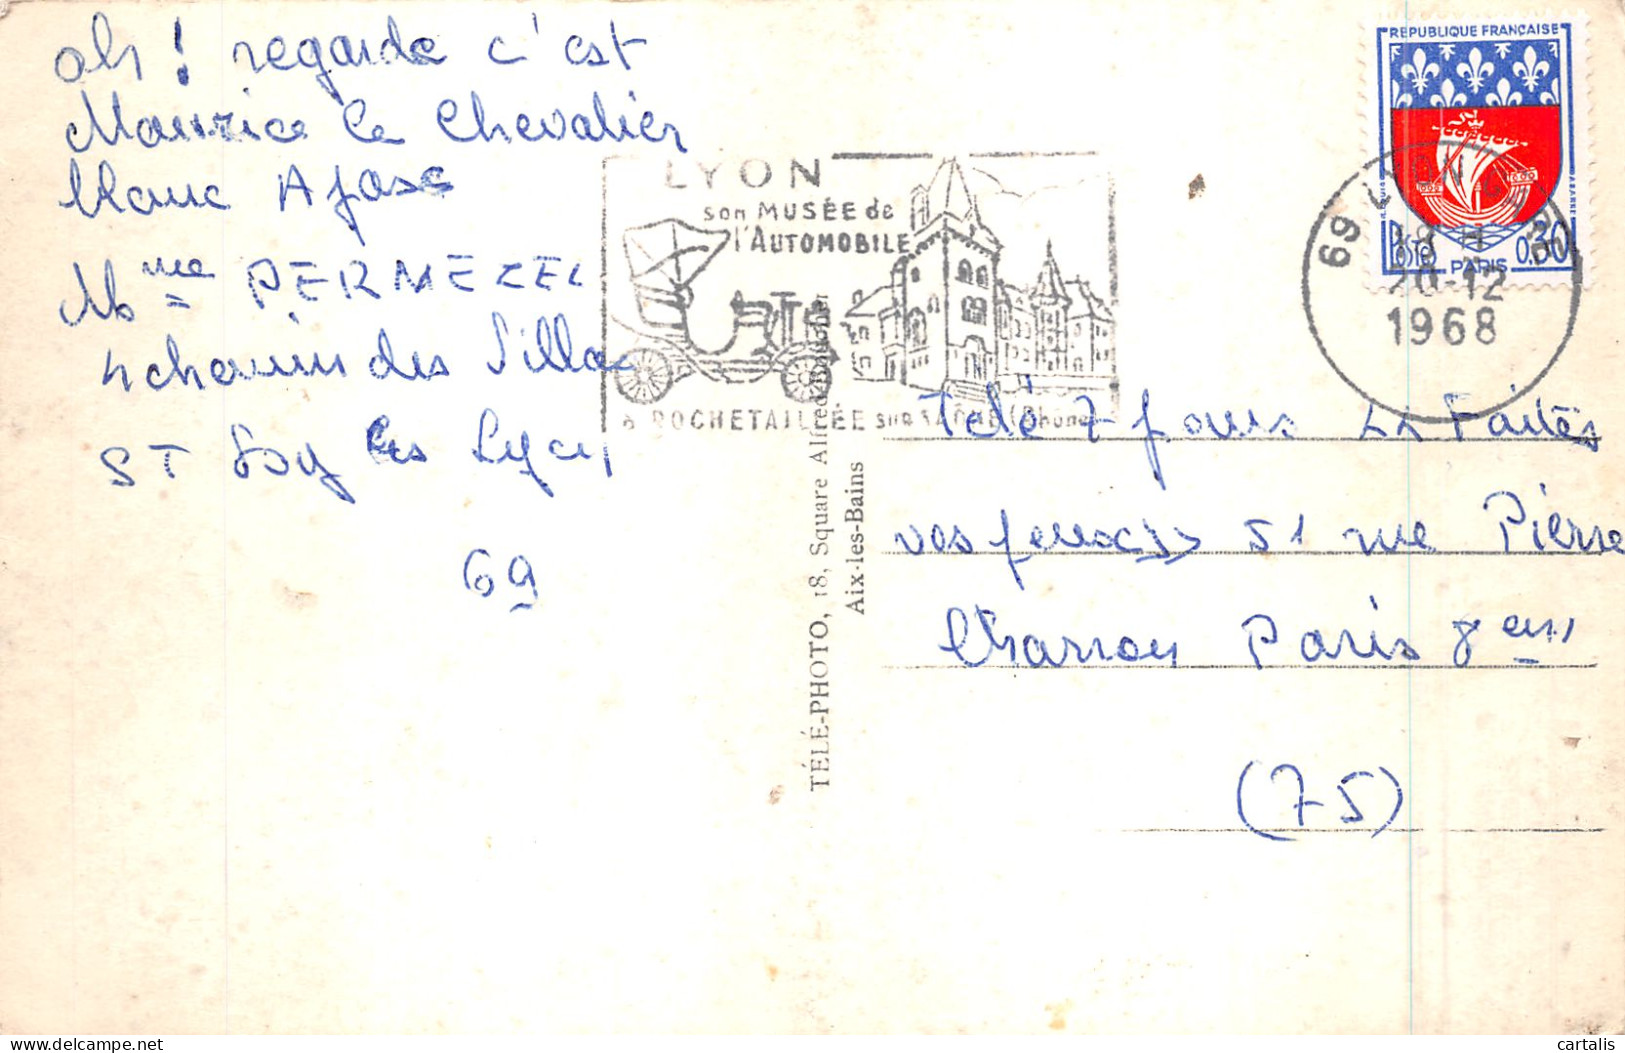 oh ! regarde c'est
Maurice le Chevalier
blanc
Mme PERMEZEL
4 chemin des Villas
ST Foy les Lyon
69
LYON
son MUSÉE de
l'AUTOMOBILE
à ROCHETAILLÉE sur SAÔNE (Rhône)
TÉLÉ-PHOTO, 18, Square Alfred Boucher
Aix-les-Bains
REPUBLIQUE FRANÇAISE
POSTES
0,30
PARIS
69 LYON GARE
18 H
20-12
1968
Télé 7 jours "Faites
vos jeux" 51 rue Pierre
Charron Paris 8em
(75)
cartalis
delcampe.net